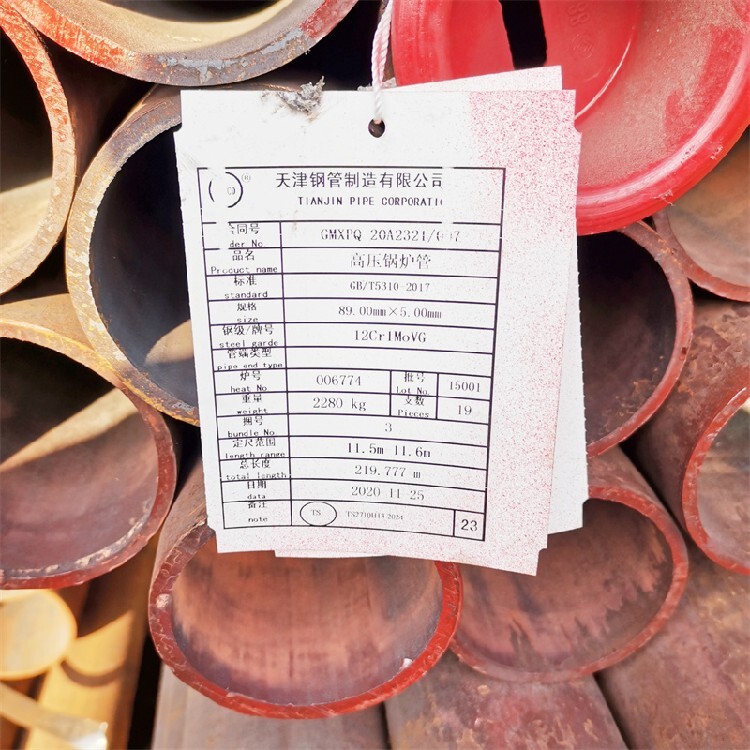 天津钢管制造有限公司
TIANJIN PIPE CORPORATI
合同号 GMXPQ 20A2321/
der No
品名 高压锅炉管
Product name
标准 GB/T5310-2017
standard
规格 89.00mm×5.00mm
size
钢级/牌号 12Cr1MoVG
steel garde
管端类型
pipe end type
炉号 006774 批号 15001
heat No lot No.
重量 2280 kg 支数 19
weight Pieces
捆号 3
buncle No
定尺范围 11.5m-11.6m
length range
总长度 219.777 m
total length
日期 2020-11-25
data
备注 TS 23
note